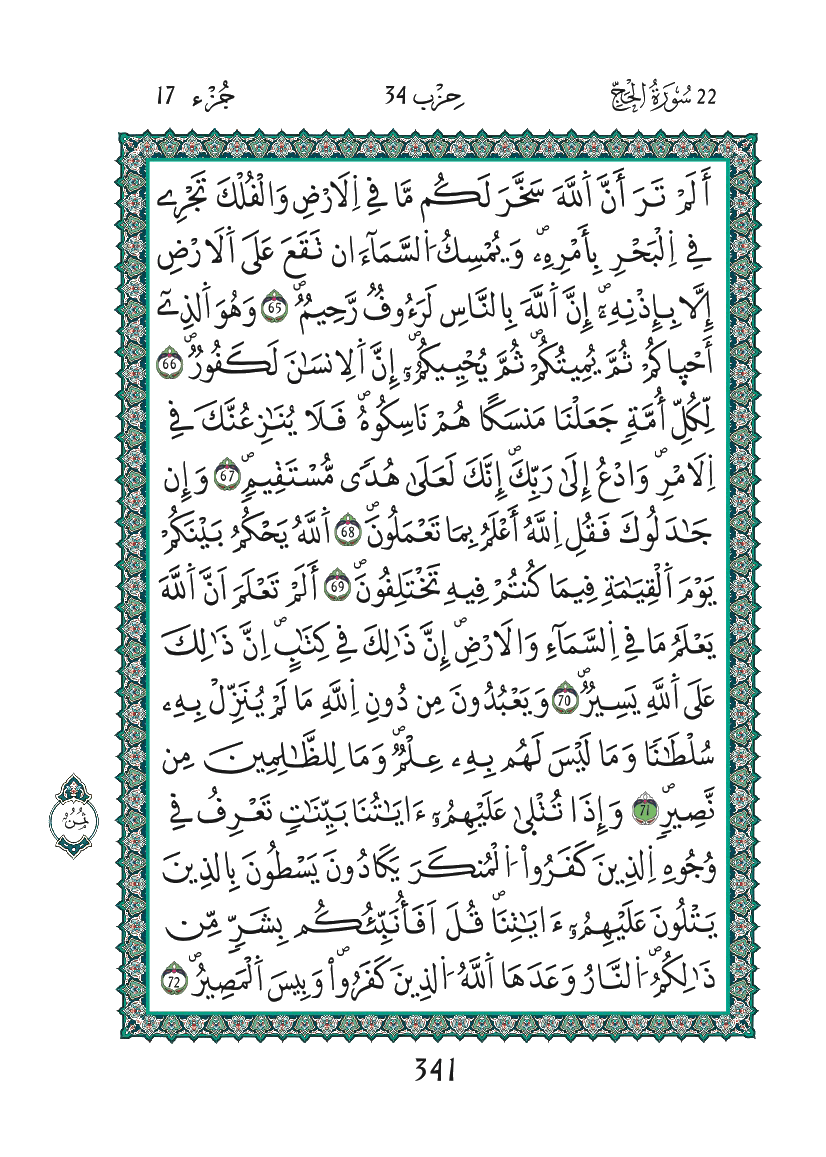 22 سُورَةُ الْحَجِّ حِزْب 34 جُزْء 17
أَلَمْ تَرَ أَنَّ اَ۬للَّهَ سَخَّرَ لَكُم مَّا فِے اِ۬لَارْضِ وَالْفُلْكَ تَجْرِے
فِے اِ۬لْبَحْرِ بِأَمْرِهِۦۖ وَيُمْسِكُ اُ۬لسَّمَآءَ ان تَقَعَ عَلَي اَ۬لَارْضِ
إِلَّا بِإِذْنِهِۦٓۖ إِنَّ اَ۬للَّهَ بِالنَّاسِ لَرَءُوفٞ رَّحِيمٞۖ 65 وَهُوَ اَ۬لذِےٓ
أَحْي۪اكُمْ ثُمَّ يُمِيتُكُمْۖ ثُمَّ يُحْيِيكُمُۥٓۖ إِنَّ اَ۬لِانسَٰنَ لَكَفُورٞۖ 66
لِّكُلِّ أُمَّةٖ جَعَلْنَا مَنسَكًا هُمْ نَاسِكُوهُۖ فَلَا يُنَٰزِعُنَّكَ فِے
اِ۬لَامْرِۖ وَادْعُ إِلَىٰ رَبِّكَۖ إِنَّكَ لَعَلَىٰ هُديٗ مُّسْتَقِيمٖۖ 67 وَإِن
جَٰدَلُوكَ فَقُلِ اِ۬للَّهُ أَعْلَمُ بِمَا تَعْمَلُونَۖ 68 اَ۬للَّهُ يَحْكُمُ بَيْنَكُمْ
يَوْمَ اَ۬لْقِيَٰمَةِ فِيمَا كُنتُمْ فِيهِ تَخْتَلِفُونَۖ 69 أَلَمْ تَعْلَمَ اَنَّ اَ۬للَّهَ
يَعْلَمُ مَا فِے اِ۬لسَّمَآءِ وَالَارْضِۖ إِنَّ ذَٰلِكَ فِے كِتَٰبٍۖ اِنَّ ذَٰلِكَ
عَلَي اَ۬للَّهِ يَسِيرٞۖ 70 وَيَعْبُدُونَ مِن دُونِ اِ۬للَّهِ مَا لَمْ يُنَزِّلْ بِهِۦ
سُلْطَٰنٗا وَمَا لَيْسَ لَهُم بِهِۦ عِلْمٞۖ وَمَا لِلظَّٰلِمِينَ مِن
نَّصِيرٖۖ 71 وَإِذَا تُتْل۪ىٰ عَلَيْهِمُۥٓ ءَايَٰتُنَا بَيِّنَٰتٖ تَعْرِفُ فِے
وُجُوهِ اِ۬لذِينَ كَفَرُواْ اُ۬لْمُنكَرَ يَكَادُونَ يَسْطُونَ بِالذِينَ
يَتْلُونَ عَلَيْهِمُۥٓ ءَايَٰتِنَاۖ قُلَ اَفَأُنَبِّئُكُم بِشَرّٖ مِّن
ذَٰلِكُمُۖ اُ۬لنَّارُ وَعَدَهَا اَ۬للَّهُ اُ۬لذِينَ كَفَرُواْۖ وَبِيسَ اَ۬لْمَصِيرُۖ 72
ثُمُنُ
341